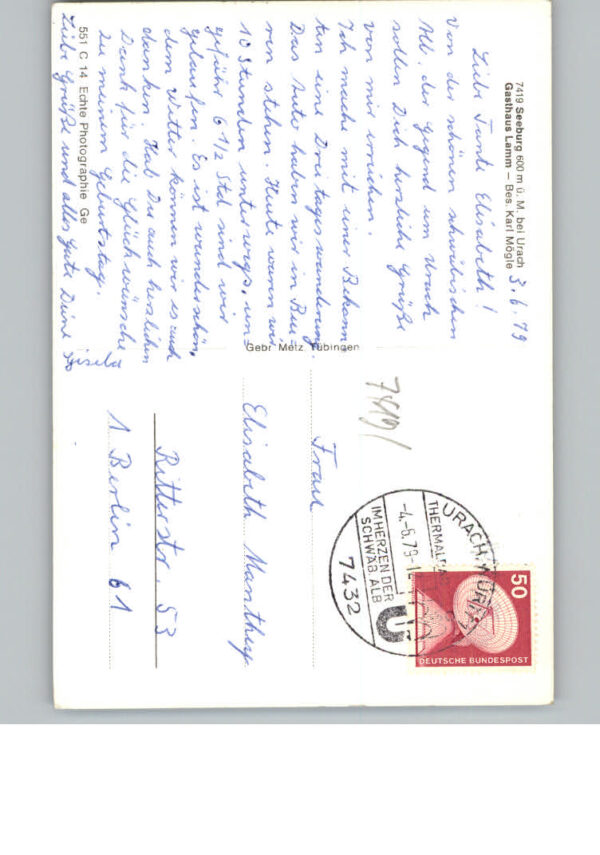 7419 Seeburg 600 m ü. M. bei Urach
Gasthaus Lamm – Bes. Karl Mögle
3.6.79
Liebe Tante Elisabeth!
Von der schönen schwäbischen
Alb. der Gegend um Urach
sollen Dich herzliche Grüße
von mir erreichen.
Ich mache mit einer Bekann
ten eine Dreitageswanderung
Das Auto haben wir in Beu
ren stehen. Heute waren wir
10 Stunden unterwegs, un
gefähr 6 1/2 Std sind wir
gelaufen. Es ist wunderschön,
dem Wetter können wir es auch
danken. Hab Du auch herzlichen
Dank für die Glückwünsche
zu meinem Geburtstag.
Liebe Grüße und alles Gute Deine
Gisela
551 C 14 Echte Photographie Ge
Gebr. Metz, Tübingen
7419/
Frau
Elisabeth Manthey
Ritterstr. 53
1 Berlin 61
URACH, WÜRTT
THERMALBA
-4.-6.79-1
IM HERZEN DER
SCHWÄB ALB
7432
50
DEUTSCHE BUNDESPOST